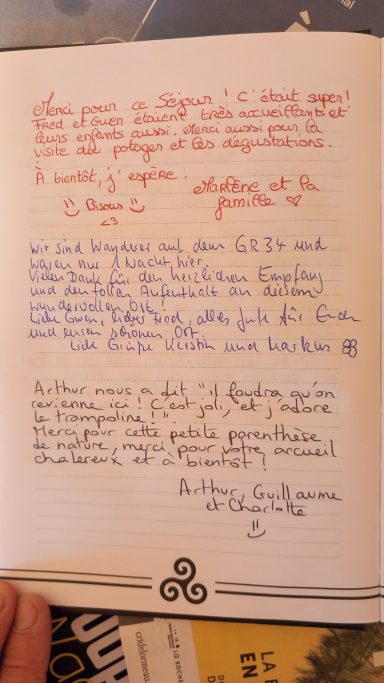 Merci pour ce Séjour ! C'était super !
Fred et Gwen étaient très accueillants et
leurs enfants aussi. Merci aussi pour la
visite du potager et les dégustations.
À bientôt, j'espère !
Marlène et la
famille ♡
Bisous
<3
Wir sind Wanderer auf dem GR34 und
waren nur 1 Nacht hier.
Vielen Dank für den herzlichen Empfang
und den tollen Aufenthalt an diesem
wundervollen Ort.
Liebe Gwen, lieber Fred, alles Gute für Euch
und euren schönen Ort.
Liebe Grüße Kerstin und Markus
Arthur nous a dit "il faudra qu'on
revienne ici ! C'est joli, et j'adore
le trampoline !".
Merci pour cette petite parenthèse
de nature, merci pour votre accueil
chalereux et à bientôt !
Arthur, Guillaume
et Charlotte
LA ROCHE
EN